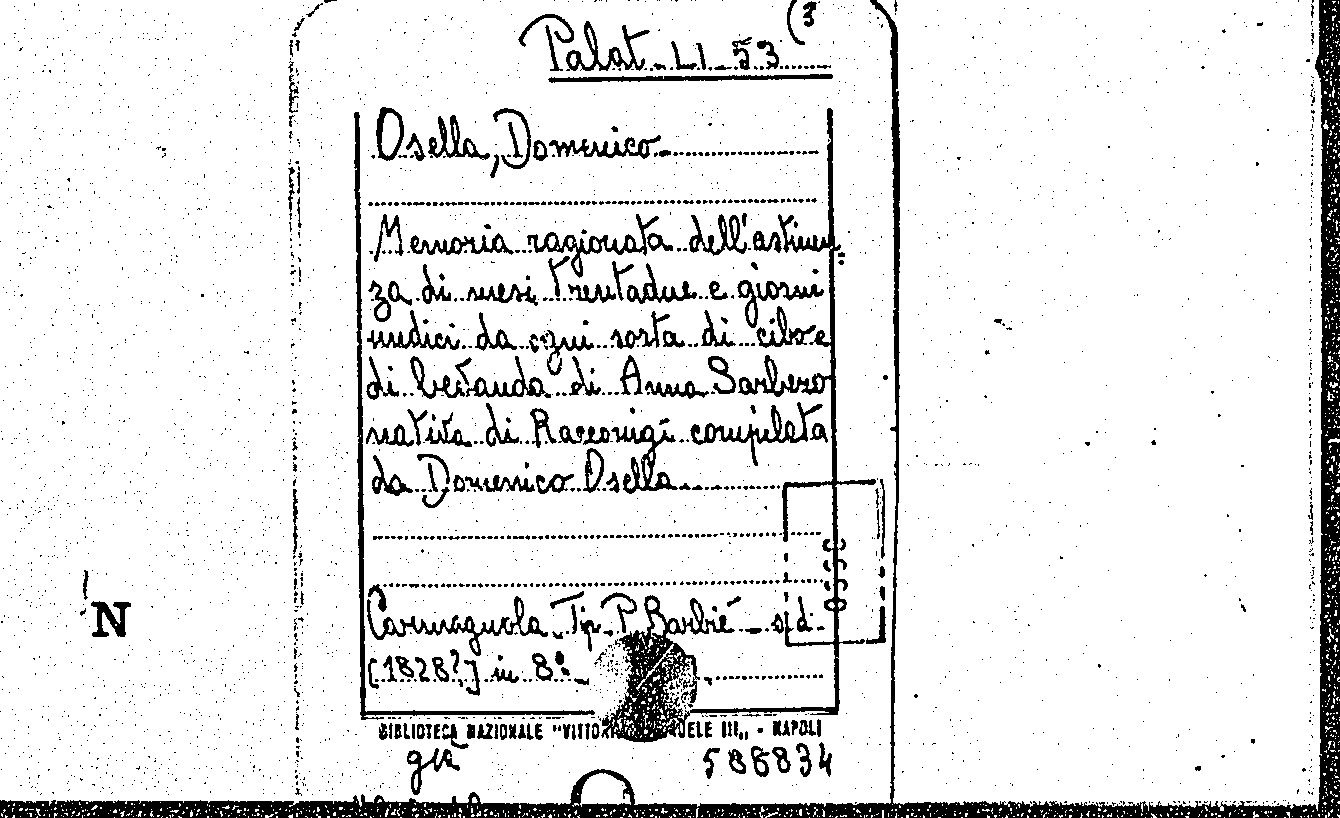 (3
Palat. LI. 53
Osella, Domenico.
Memoria ragionata dell'astinen
za di mesi trentadue e giorni
undici da ogni sorta di cibo e
di bevanda di Anna Sarbero
nativa di Racconigi compilata
da Domenico Osella
Carmagnola Tip. P. Barbié - s.d.
[1828?] in 8°.
BIBLIOTECA NAZIONALE "VITTORIO EMANUELE III„ - NAPOLI
già
586834
N